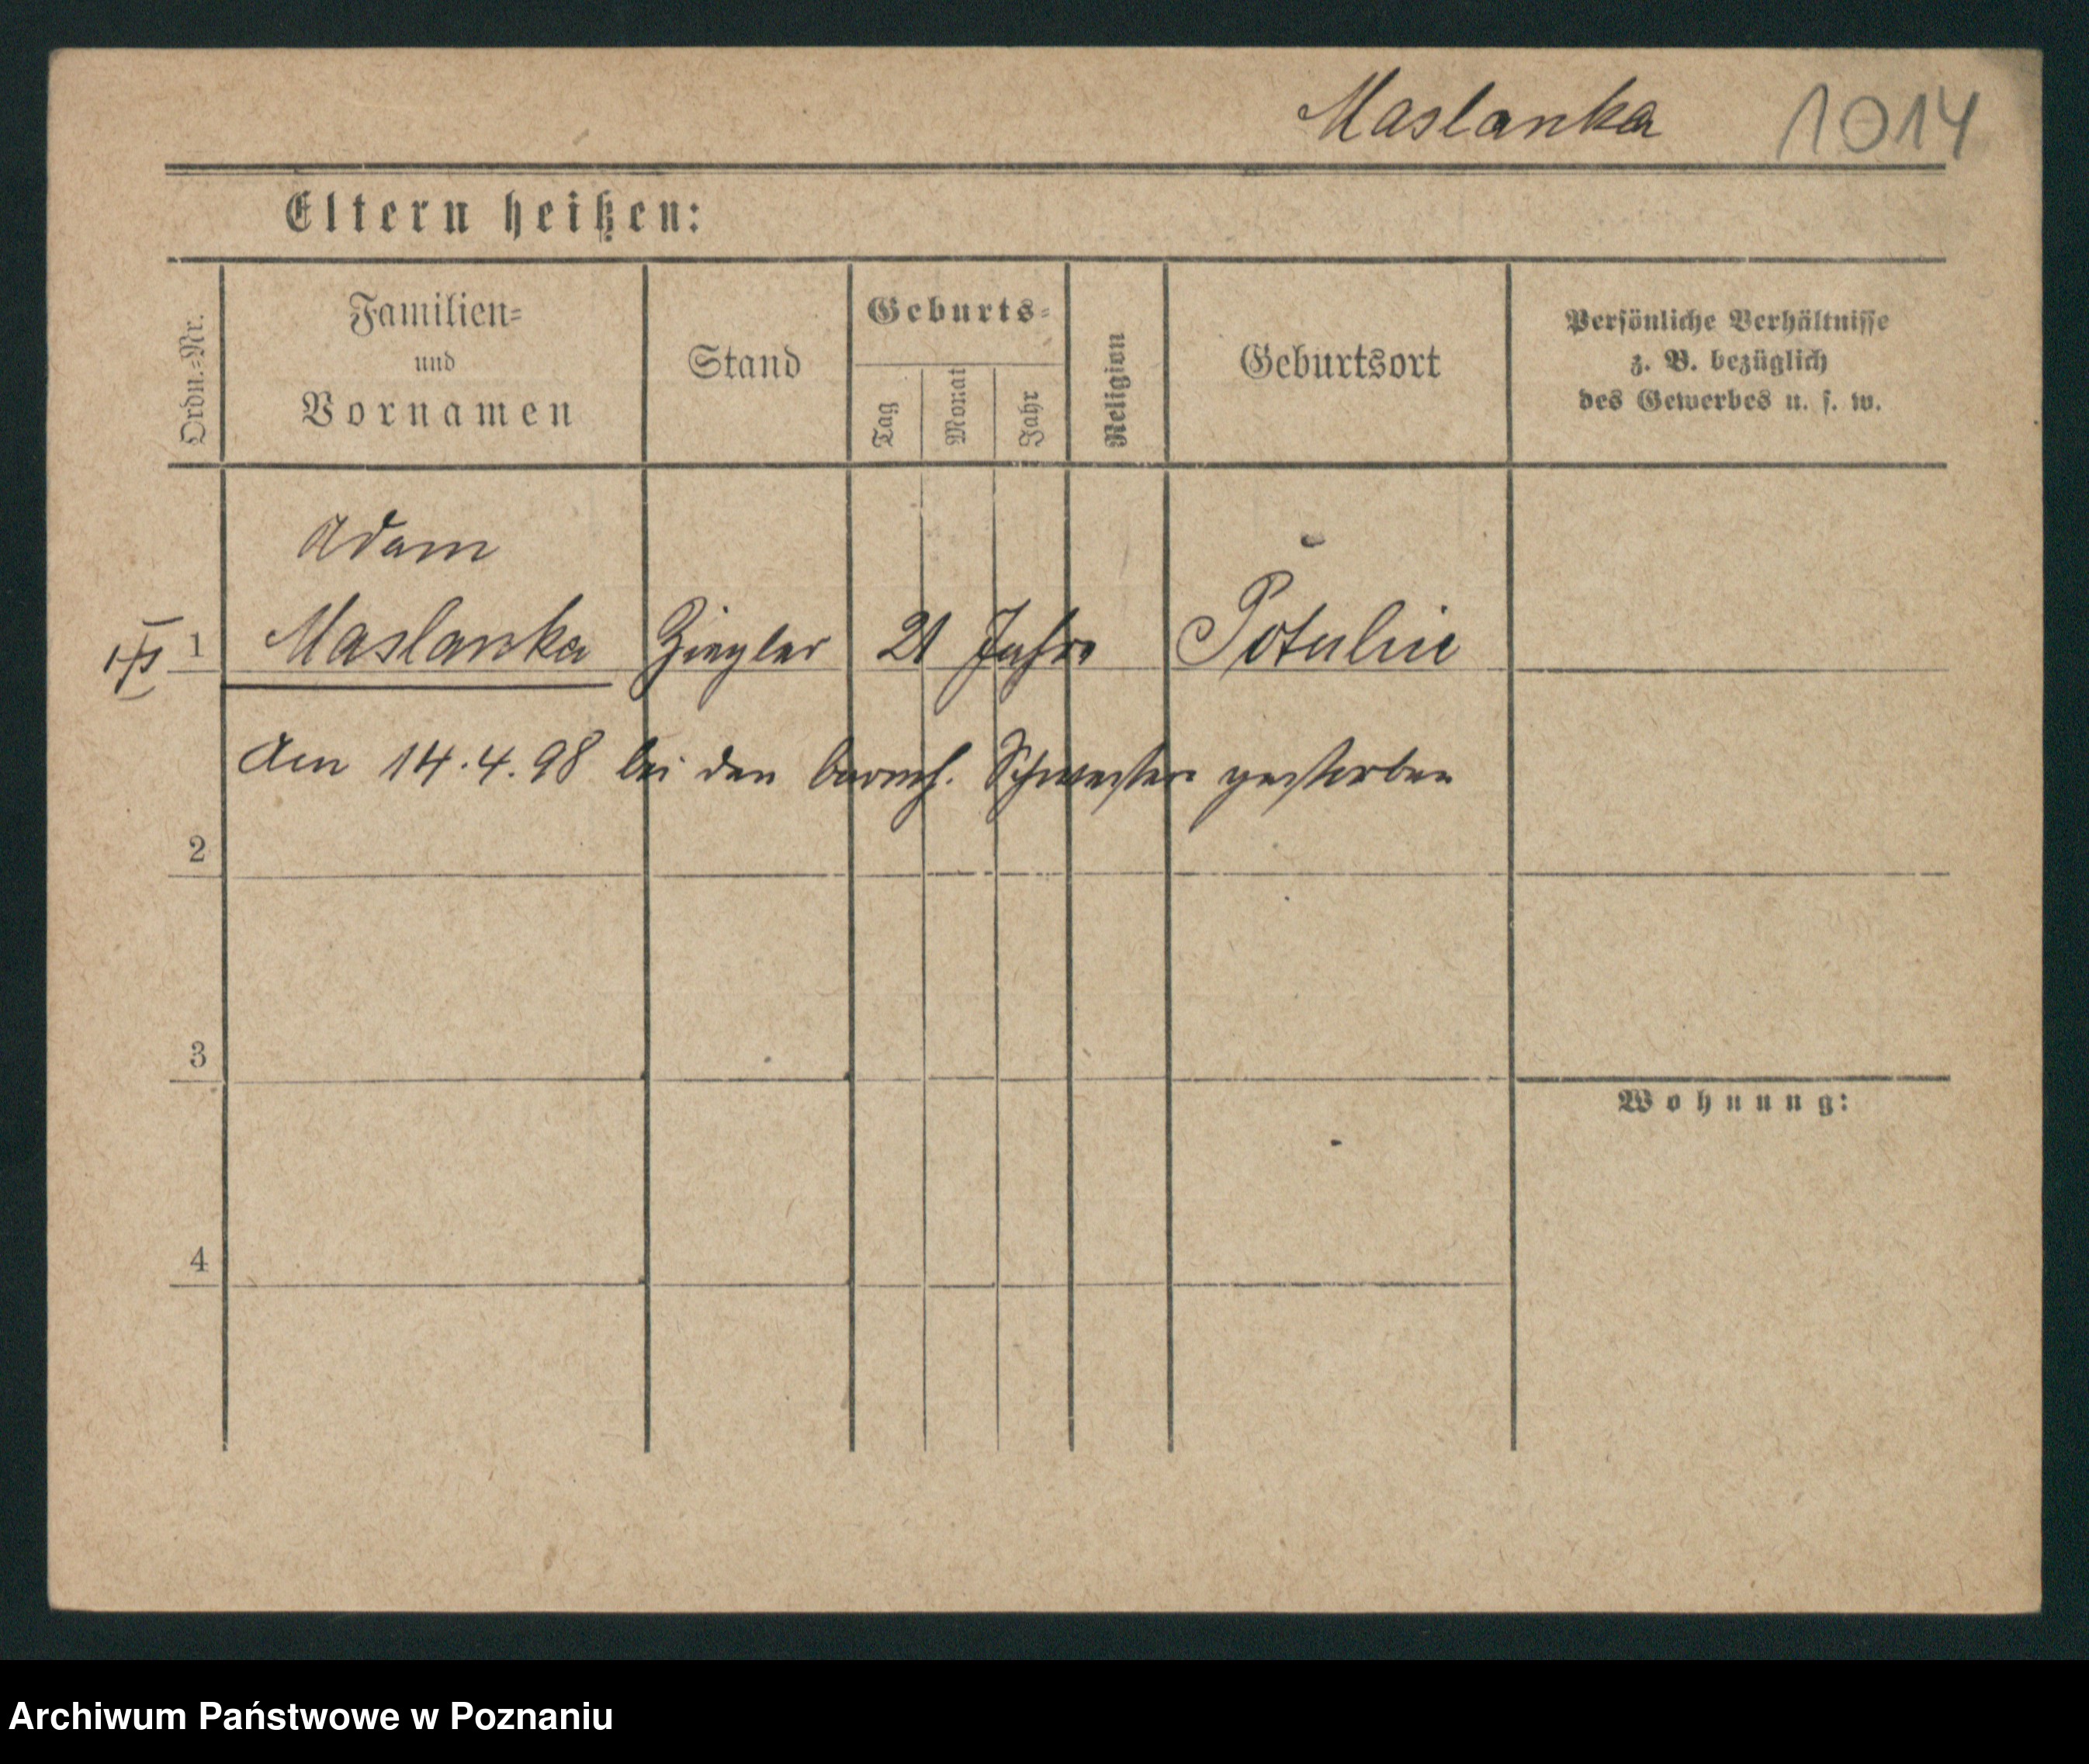 Maslanka 1014
Eltern heißen:
Ordn.=Nr.
Familien=
und
Vornamen
Stand
Geburts=
Tag
Monat
Jahr
Religion
Geburtsort
Persönliche Verhältnisse
z. B. bezüglich
des Gewerbes u. s. w.
Adam
1 Maslanka Ziegler 21 Jahre Potulin
Am 14.4.98 bei den barmh. Schwestern gestorben
2
3
Wohnung:
4
Archiwum Państwowe w Poznaniu